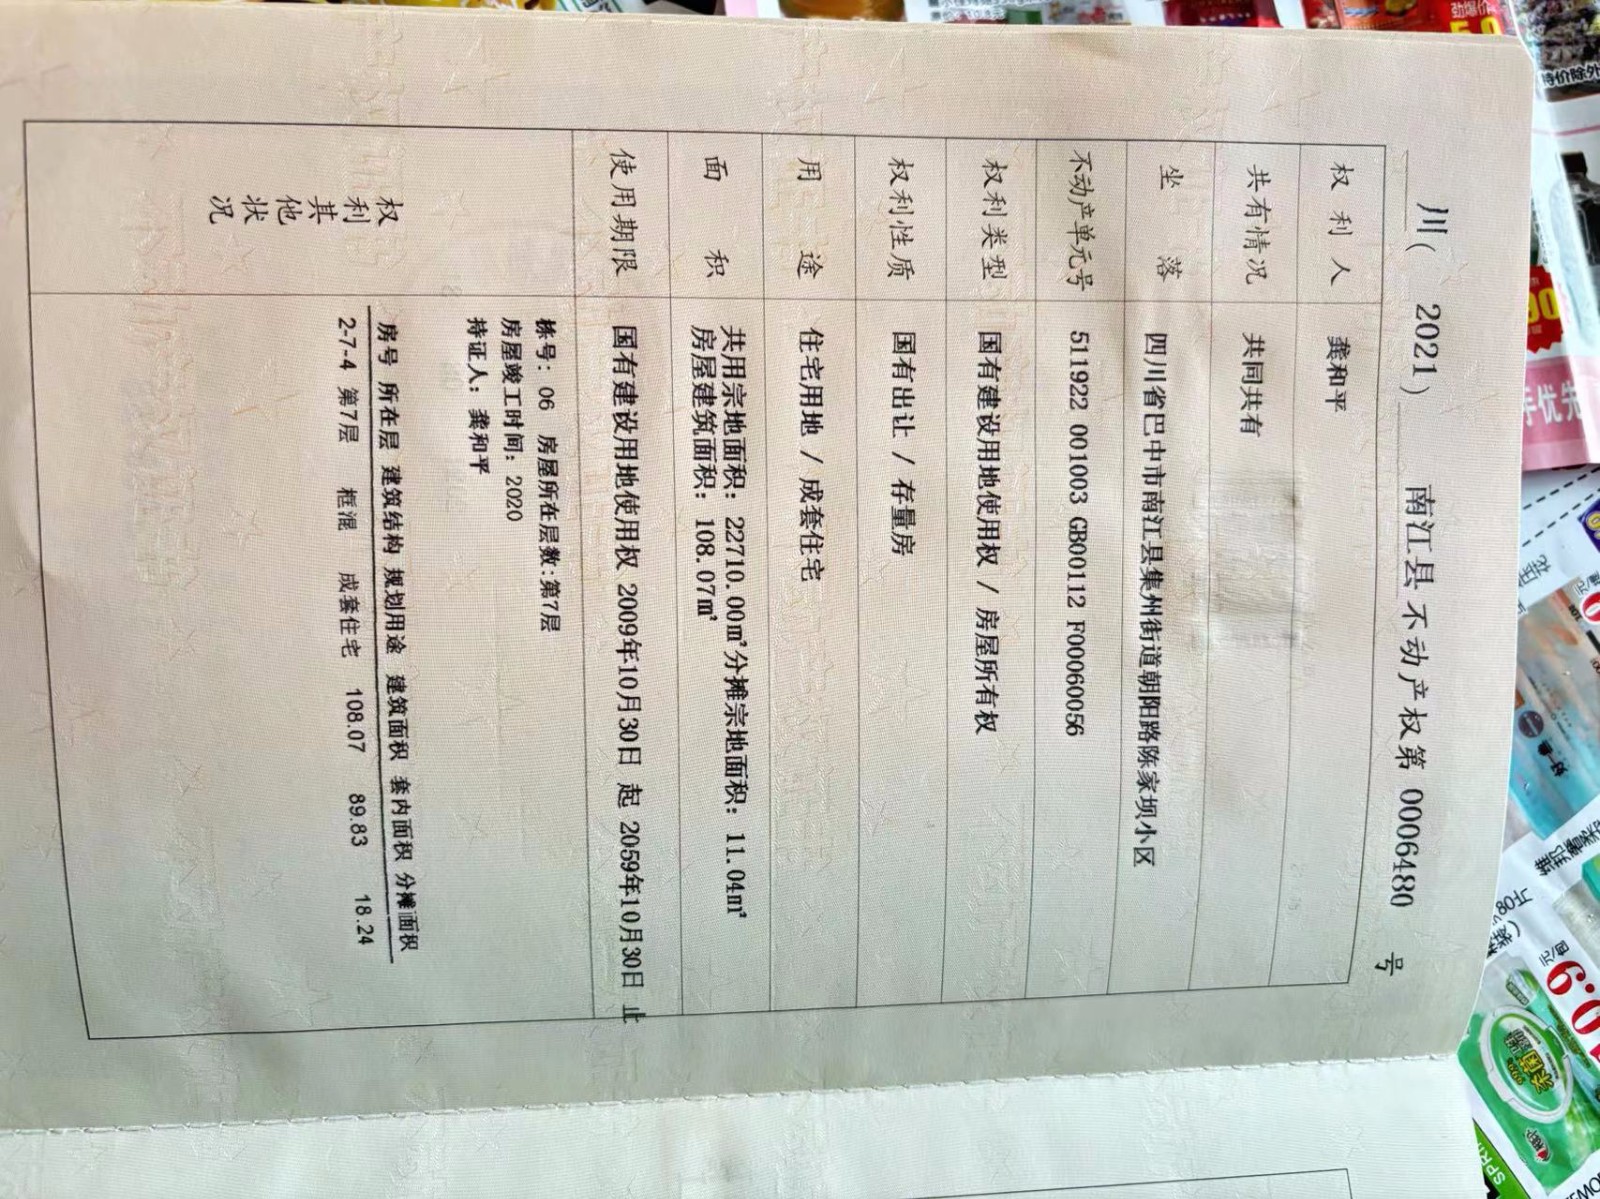 川（ 2021） 南江县 不动产权第 0006480 号
权利人 龚和平
共有情况 共同共有
坐落 四川省巴中市南江县集州街道朝阳路陈家坝小区
不动产单元号 511922 001003 GB00112 F00060056
权利类型 国有建设用地使用权 / 房屋所有权
权利性质 国有出让 / 存量房
用途 住宅用地 / 成套住宅
面积 共用宗地面积：22710.00㎡分摊宗地面积：11.04㎡
房屋建筑面积：108.07㎡
使用期限 国有建设用地使用权 2009年10月30日 起 2059年10月30日 止
权利其他状况
栋号：06 房屋所在层数:第7层
房屋竣工时间：2020
持证人：龚和平
房号 所在层 建筑结构 规划用途 建筑面积 套内面积 分摊面积
2-7-4 第7层 框混 成套住宅 108.07 89.83 18.24
劲爆价
特价除外
手优先
元/包